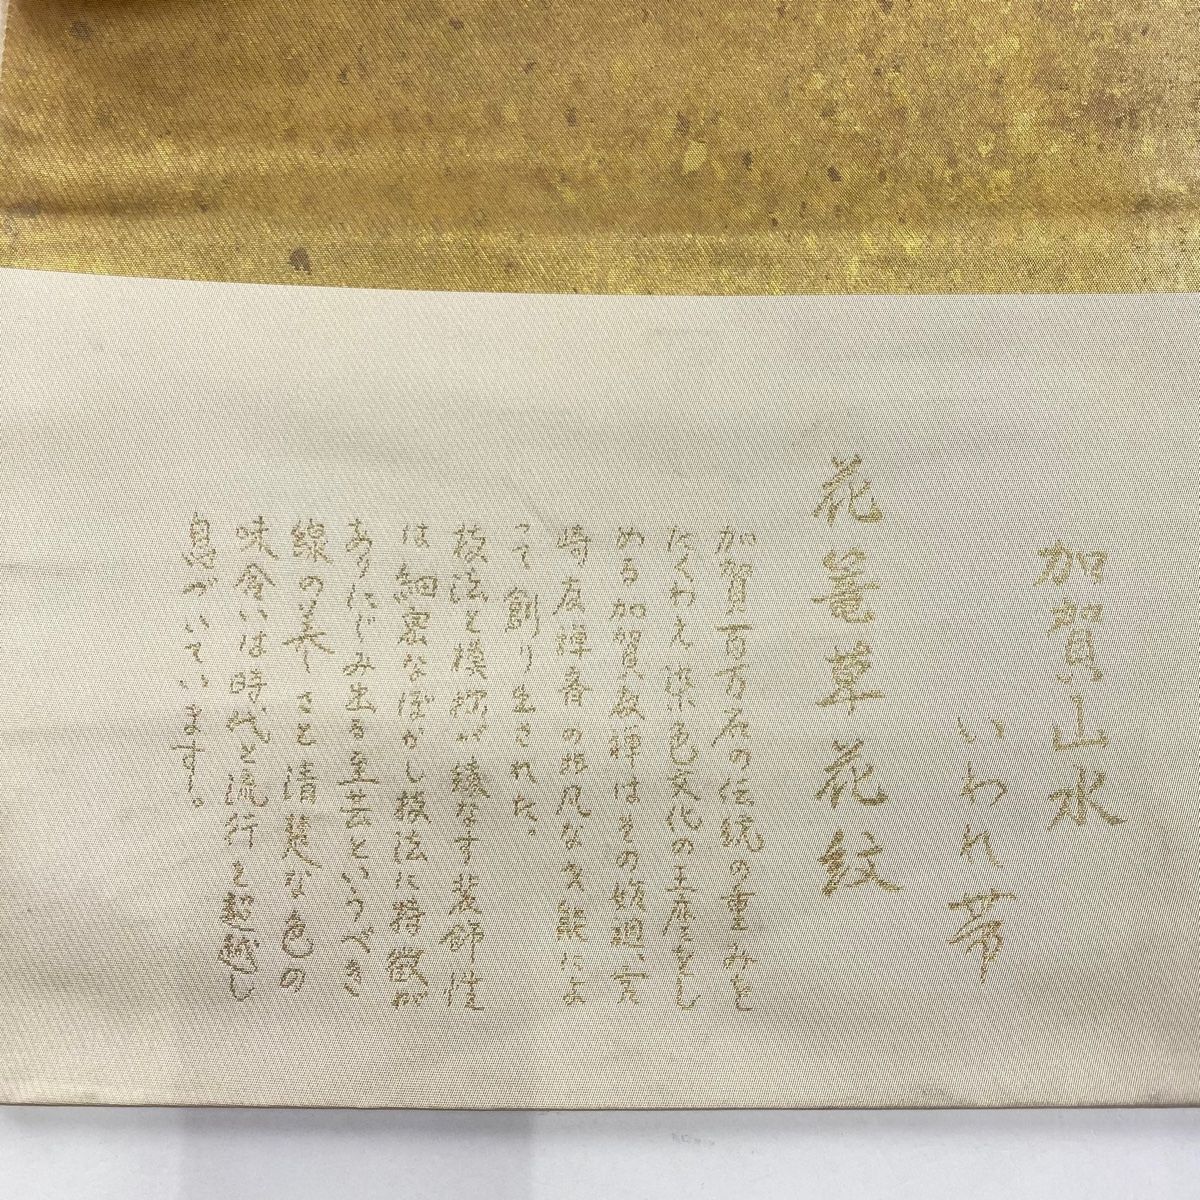 加賀山水
いわれ帯
花篭草花紋
加賀百万石の伝統の重みを
たくわえ染色文化の王座をし
める加賀友禅はその始祖、宮
崎友禅斉の非凡なる能によ
って創り生された。
技法と模様が綾なす装飾性
は細密なぼかし技法に特徴が
ありにじみ出る至芸というべき
線の美しさと清楚な色の
味合いは時代と流行を超越し
息づいています。